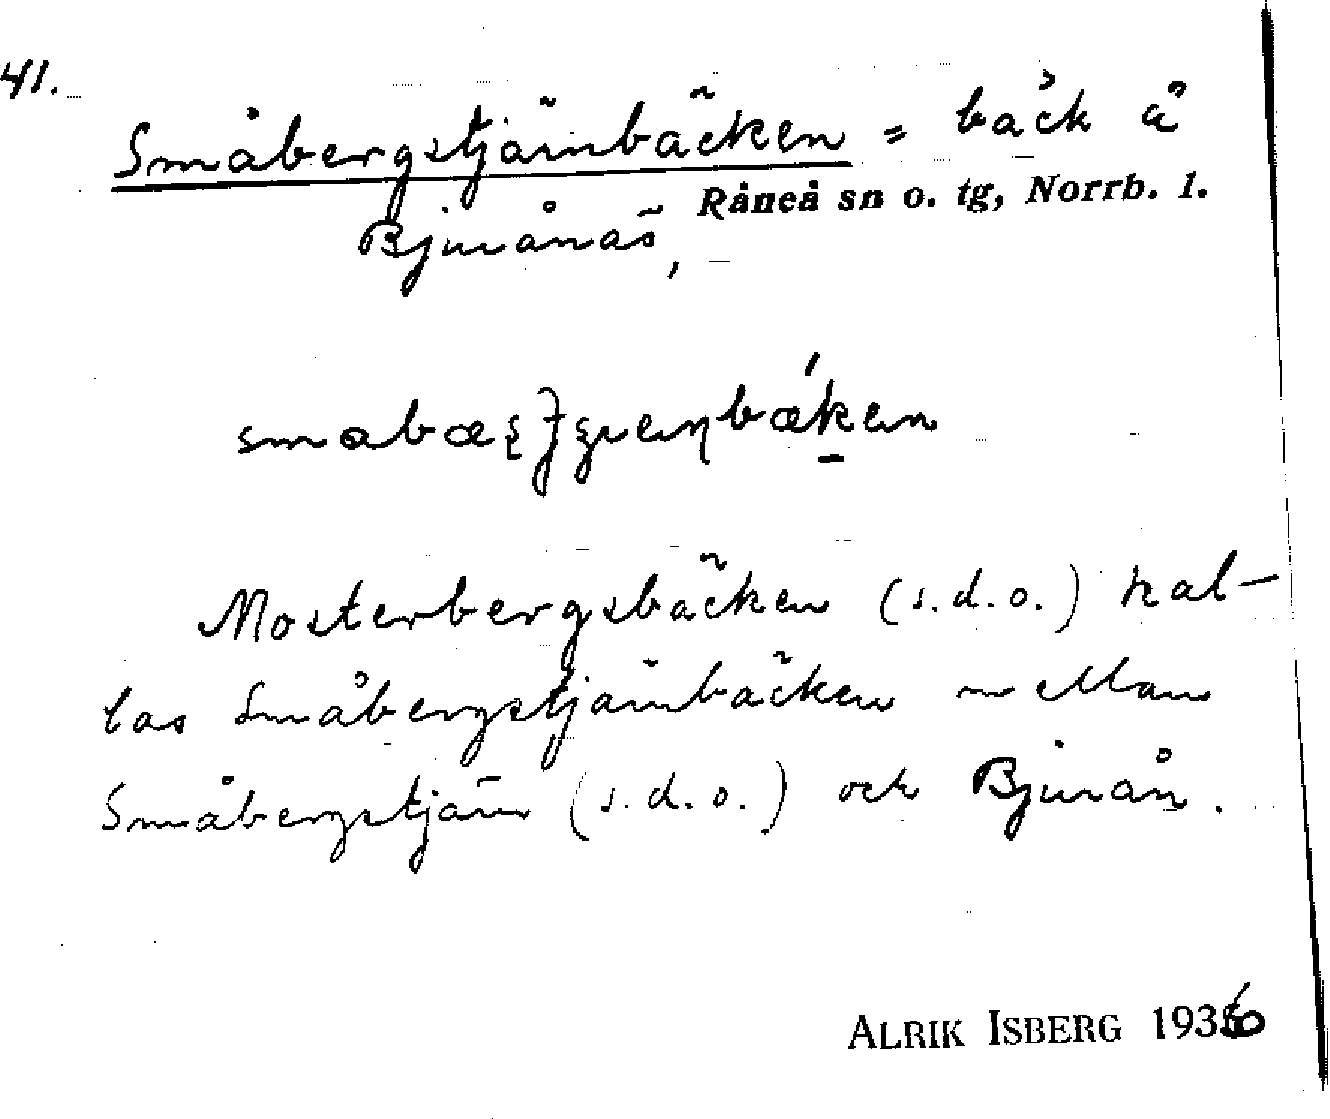 41.
Småbergstjärnbäcken = bäck å
Råneå sn o. tg, Norrb. l.
Bjuränäs,
Mosterbergsbäcken (s.d.o.) kal-
las Småbergstjärnbäcken mellan
Småbergstjärn (s.d.o.) och Bjurån.
ALRIK ISBERG 1936